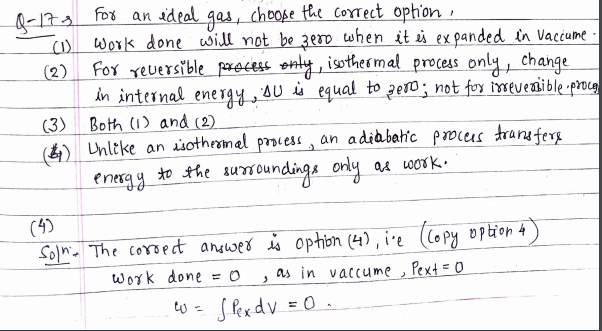 Q-17→ For an ideal gas, choose the correct option,
(1) Work done will not be zero when it is expanded in Vaccume.
(2) For reversible process only, isothermal process only, change
in internal energy, ΔU is equal to zero; not for irreversible proces
(3) Both (1) and (2)
(4) Unlike an isothermal process, an adiabatic process transfers
energy to the surroundings only as work.
(4)
Soln:- The correct answer is option (4), i.e (Copy option 4)
Work done = 0 , as in vaccume, Pext = 0
w = ∫Pex dv = 0 .